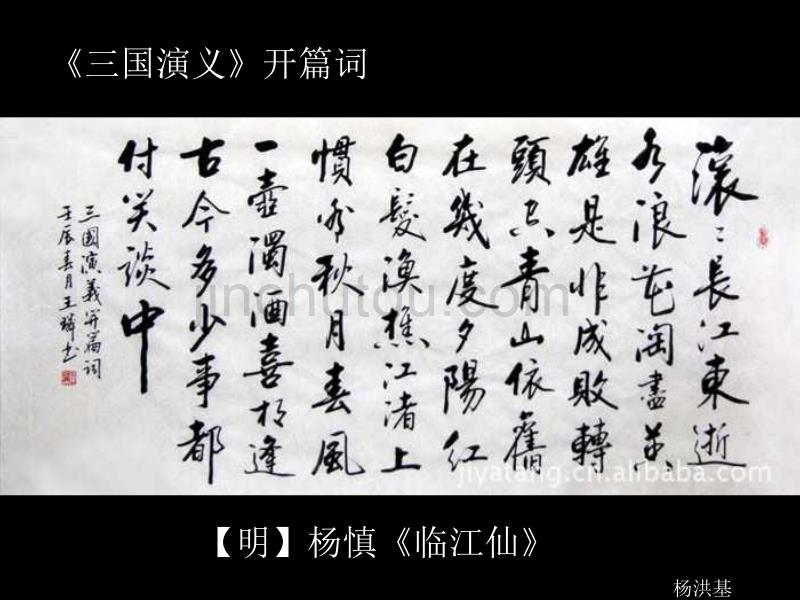 《三国演义》开篇词
滚〻長江東逝
水浪花淘盡英
雄是非成敗轉
頭空青山依舊
在幾度夕陽紅
白髮漁樵江渚上
慣看秋月春風
一壺濁酒喜相逢
古今多少事都
付笑談中
三國演義開篇詞
壬辰春月王书
jinchutou.com
jiyatang.cn.alibaba.com
【明】杨慎《临江仙》
杨洪基